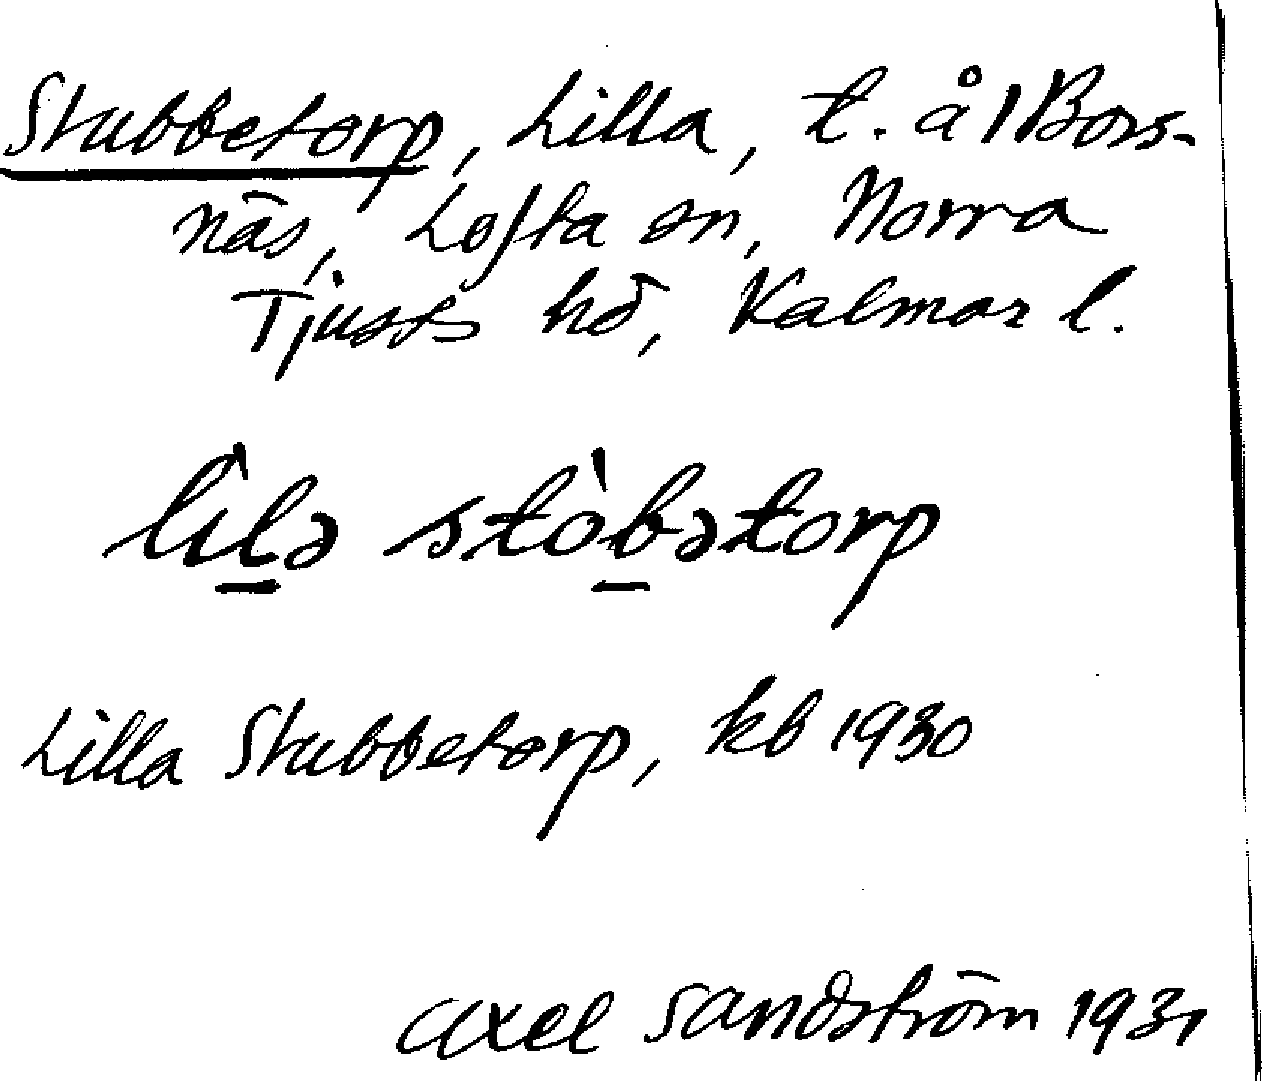 Stubbetorp, Lilla, t. å 1 Bors-
näs, Lofta sn, Norra
Tjusts hd, Kalmar l.
lìlə stòbətorp
Lilla Stubbetorp, kb 1930
Axel Sandström 1931